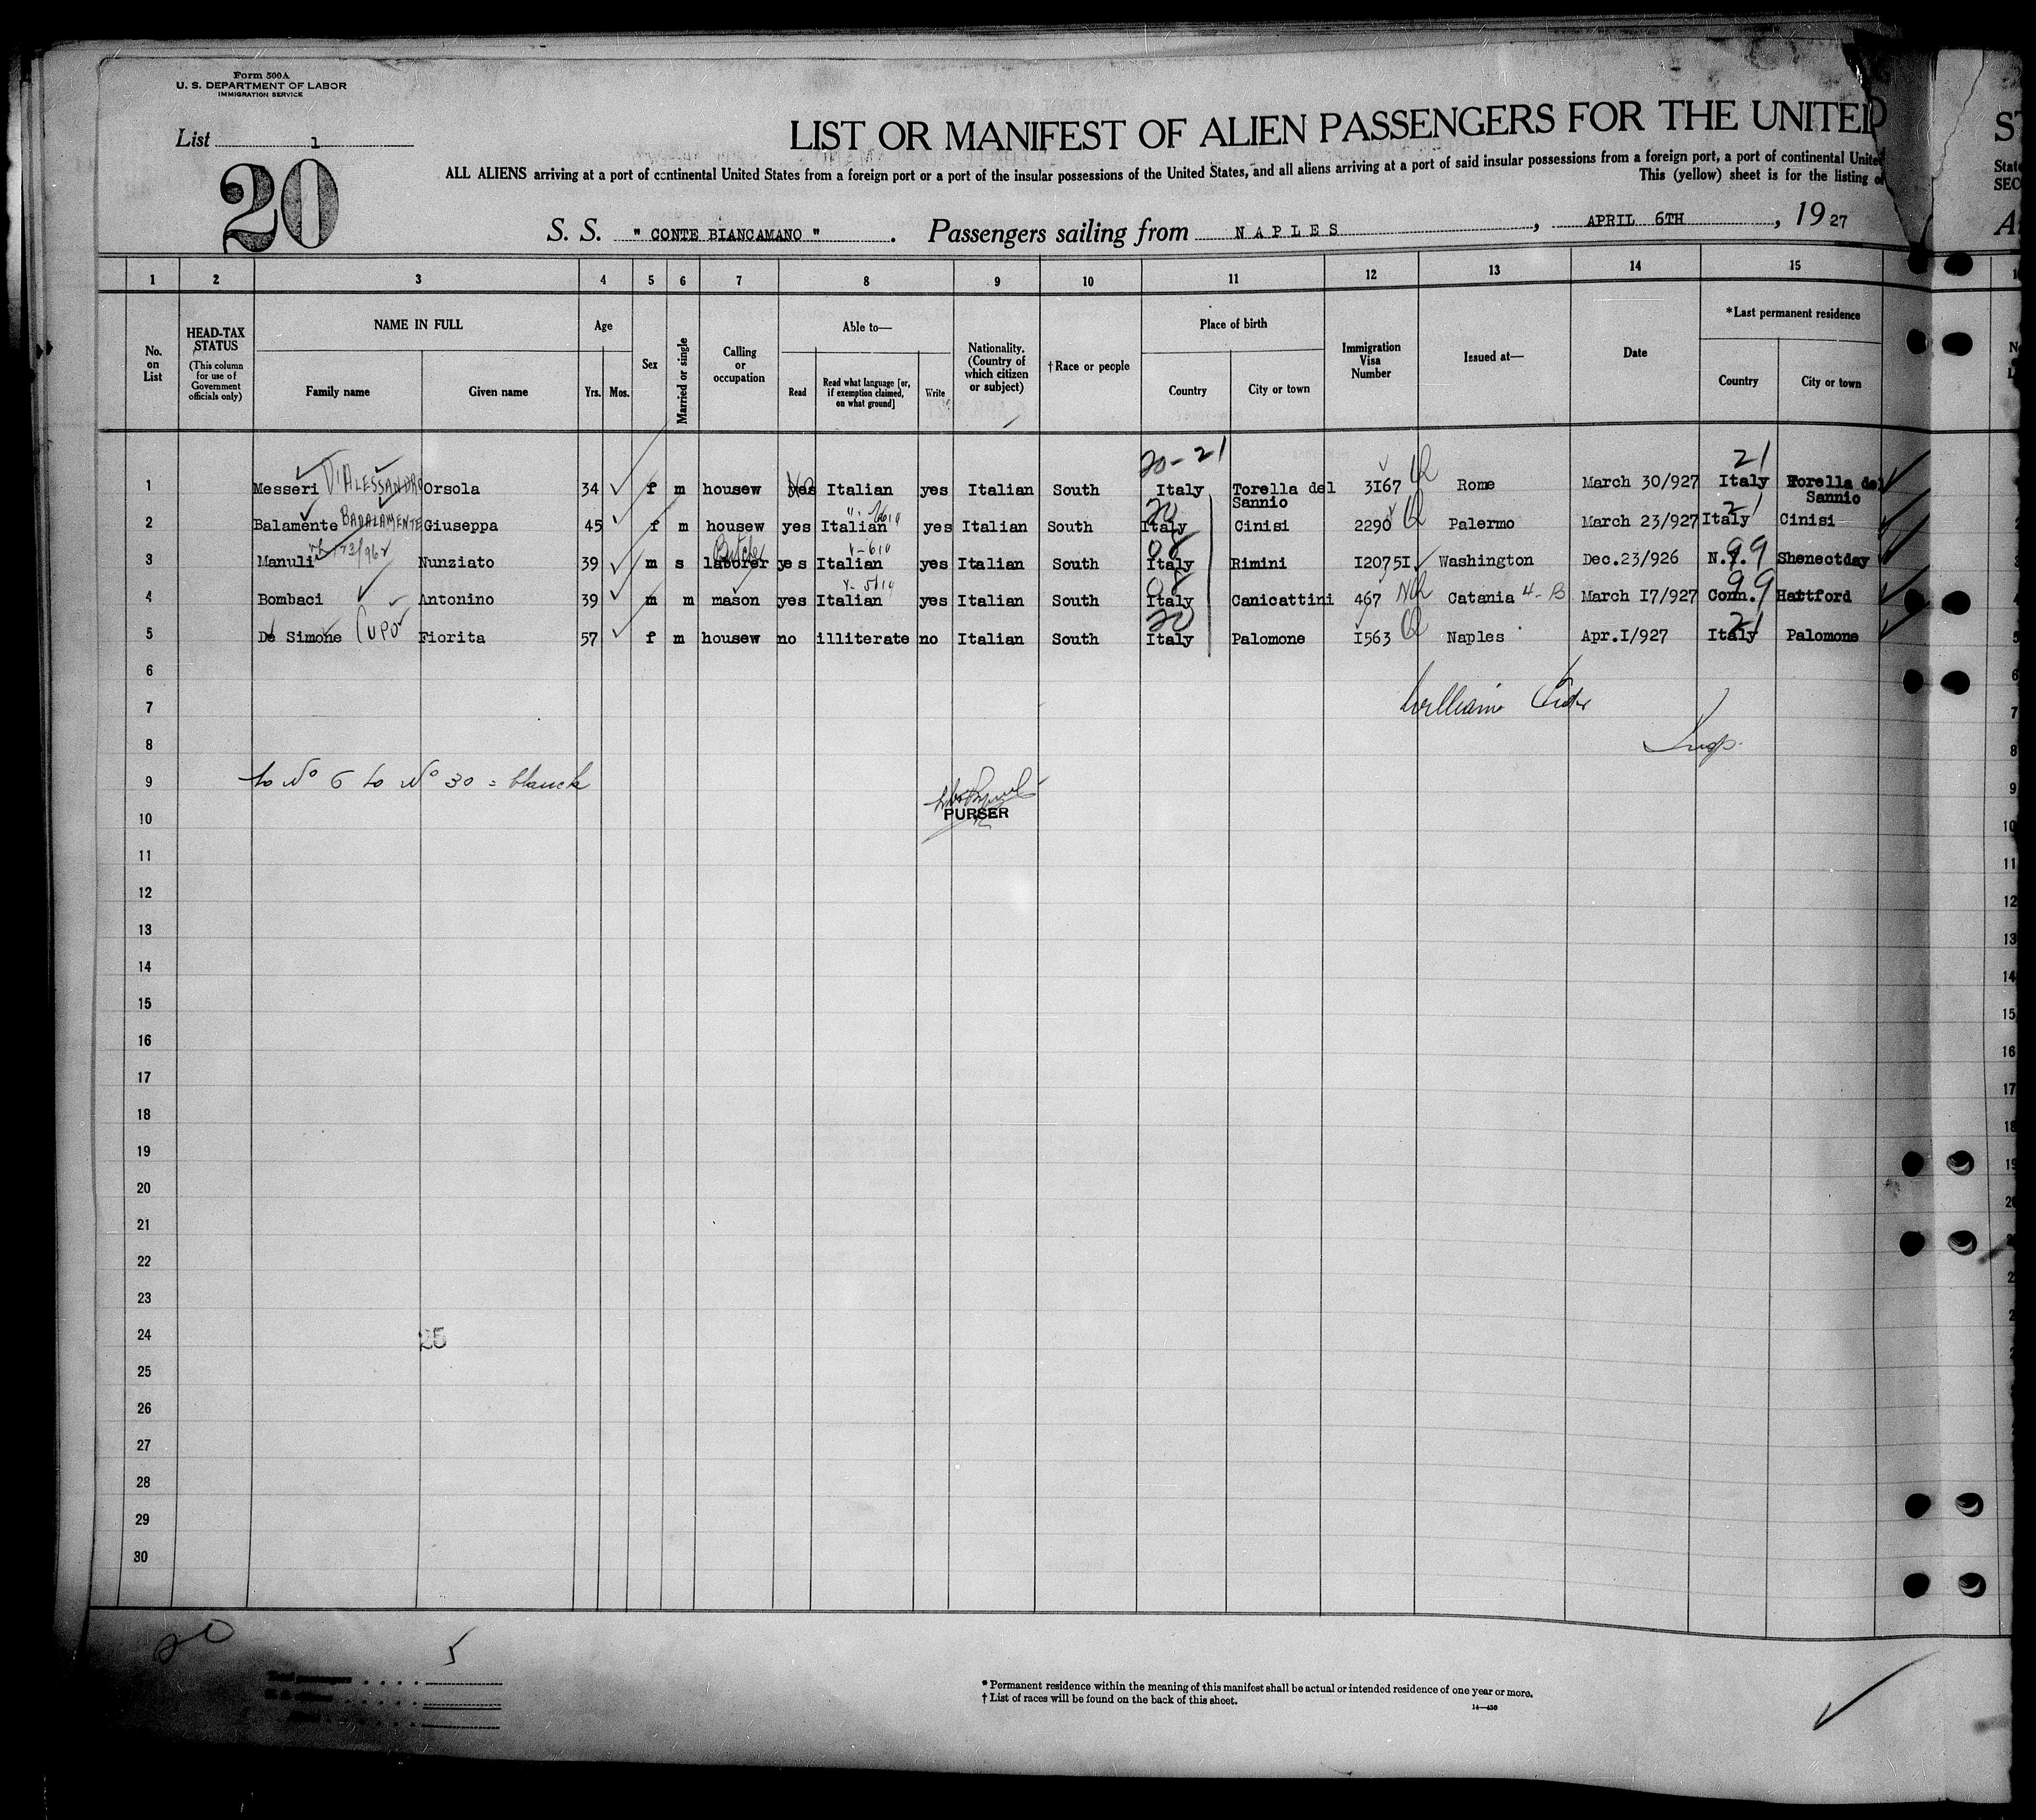 Form 500A
U. S. DEPARTMENT OF LABOR
IMMIGRATION SERVICE
List 1
20
LIST OR MANIFEST OF ALIEN PASSENGERS FOR THE UNITED
ALL ALIENS arriving at a port of continental United States from a foreign port or a port of the insular possessions of the United States, and all aliens arriving at a port of said insular possessions from a foreign port, a port of continental United
This (yellow) sheet is for the listing of
S. S. " CONTE BIANCAMANO " . Passengers sailing from NAPLES , APRIL 6TH , 1927
1 2 3 4 5 6 7 8 9 10 11 12 13 14 15
No. on List
HEAD-TAX STATUS (This column for use of Government officials only)
NAME IN FULL Family name Given name
Age Yrs. Mos.
Sex
Married or single
Calling or occupation
Able to— Read Read what language [or, if exemption claimed, on what ground] Write
Nationality. (Country of which citizen or subject)
†Race or people
Place of birth Country City or town
Immigration Visa Number
Issued at—
Date
*Last permanent residence Country City or town
20-21 21
1 Messeri D'ALESSANDRO Orsola 34 f m housew yes No Italian yes Italian South Italy Torella del Sannio 3I67 Rome March 30/927 Italy Torella del Sannio
20 21
2 Balamente BADALAMENTE Giuseppa 45 f m housew yes Italian yes Italian South Italy Cinisi 2290 Palermo March 23/927 Italy Cinisi
08 99
3 Manuli Nunziato 39 m s laborer Butcher yes Italian yes Italian South Italy Rimini I2075I Washington Dec.23/926 N.Y. Shenectday
08 99
4 Bombaci Antonino 39 m m mason yes Italian yes Italian South Italy Canicattini 467 Catania 4-B March I7/927 Conn. Hartford
20 21
5 De Simone CUPO Fiorita 57 f m housew no illiterate no Italian South Italy Palomone I563 Naples Apr.I/927 Italy Palomone
6
7 William
8 Insp.
9 to No 6 to No 30 = blanck
10 PURSER
11
12
13
14
15
16
17
18
19
20
21
22
23
24 25
25
26
27
28
29
30
20
5
Total passengers
* Permanent residence within the meaning of this manifest shall be actual or intended residence of one year or more.
† List of races will be found on the back of this sheet.
14—430